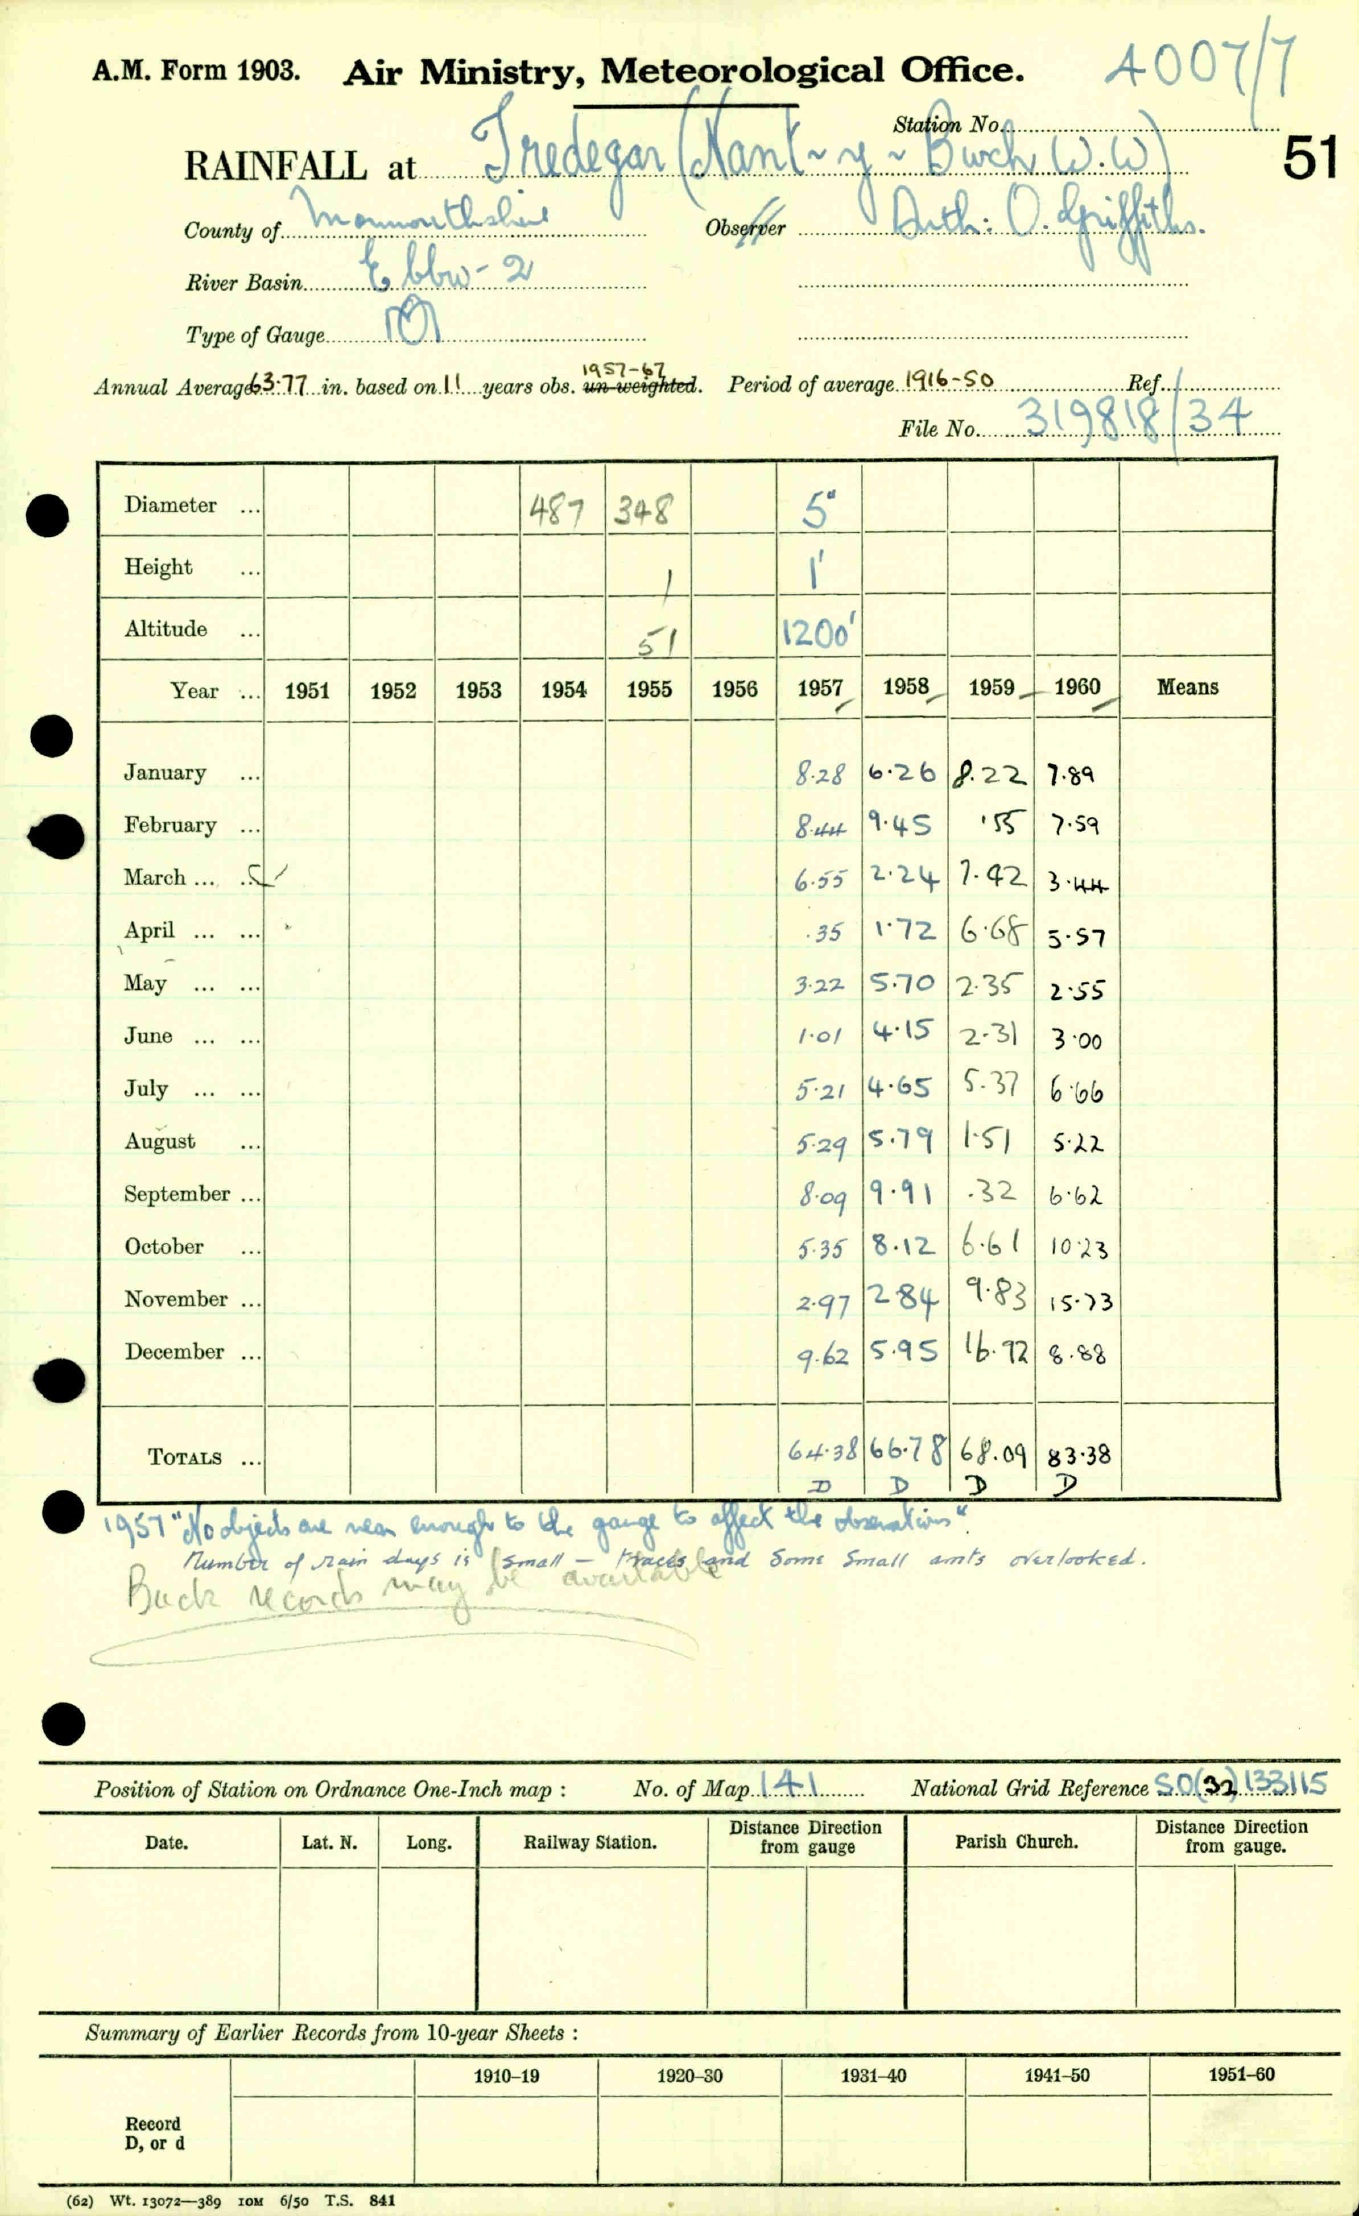 A.M. Form 1903. Air Ministry, Meteorological Office. 4007/7
Station No.
RAINFALL at Tredegar (Nant-y-Bwch W.W) 51
County of Monmouthshire Observer Auth: O. Griffiths.
River Basin Ebbw - 2
Type of Gauge
1957-67
Annual Average 63.77 in. based on 11 years obs. un-weighted. Period of average 1916-50 Ref.
File No. 319818/34
Diameter ... 487 348 5"
Height ... 1 1'
Altitude ... 51 1200'
Year ... 1951 1952 1953 1954 1955 1956 1957 1958 1959 1960 Means
January ... 8.28 6.26 8.22 7.89
February ... 8.44 9.45 .55 7.59
March ... ... 6.55 2.24 7.42 3.44
April ... ... .35 1.72 6.68 5.57
May ... ... 3.22 5.70 2.35 2.55
June ... ... 1.01 4.15 2.31 3.00
July ... ... 5.21 4.65 5.37 6.66
August ... 5.29 5.79 1.51 5.22
September ... 8.09 9.91 .32 6.62
October ... 5.35 8.12 6.61 10.23
November ... 2.97 2.84 9.83 15.73
December ... 9.62 5.95 16.92 8.88
TOTALS ... 64.38 66.78 68.09 83.38
D D D D
1957 "No objects are near enough to the gauge to affect the observations".
Number of rain days is small – traces and some small amts overlooked.
Back records may be available
Position of Station on Ordnance One-Inch map : No. of Map 141 National Grid Reference SO(32)133115
Date. Lat. N. Long. Railway Station. Distance Direction from gauge Parish Church. Distance Direction from gauge.
Summary of Earlier Records from 10-year Sheets :
1910–19 1920–30 1931–40 1941–50 1951–60
Record
D, or d
(62) Wt. 13072—389 10M 6/50 T.S. 841